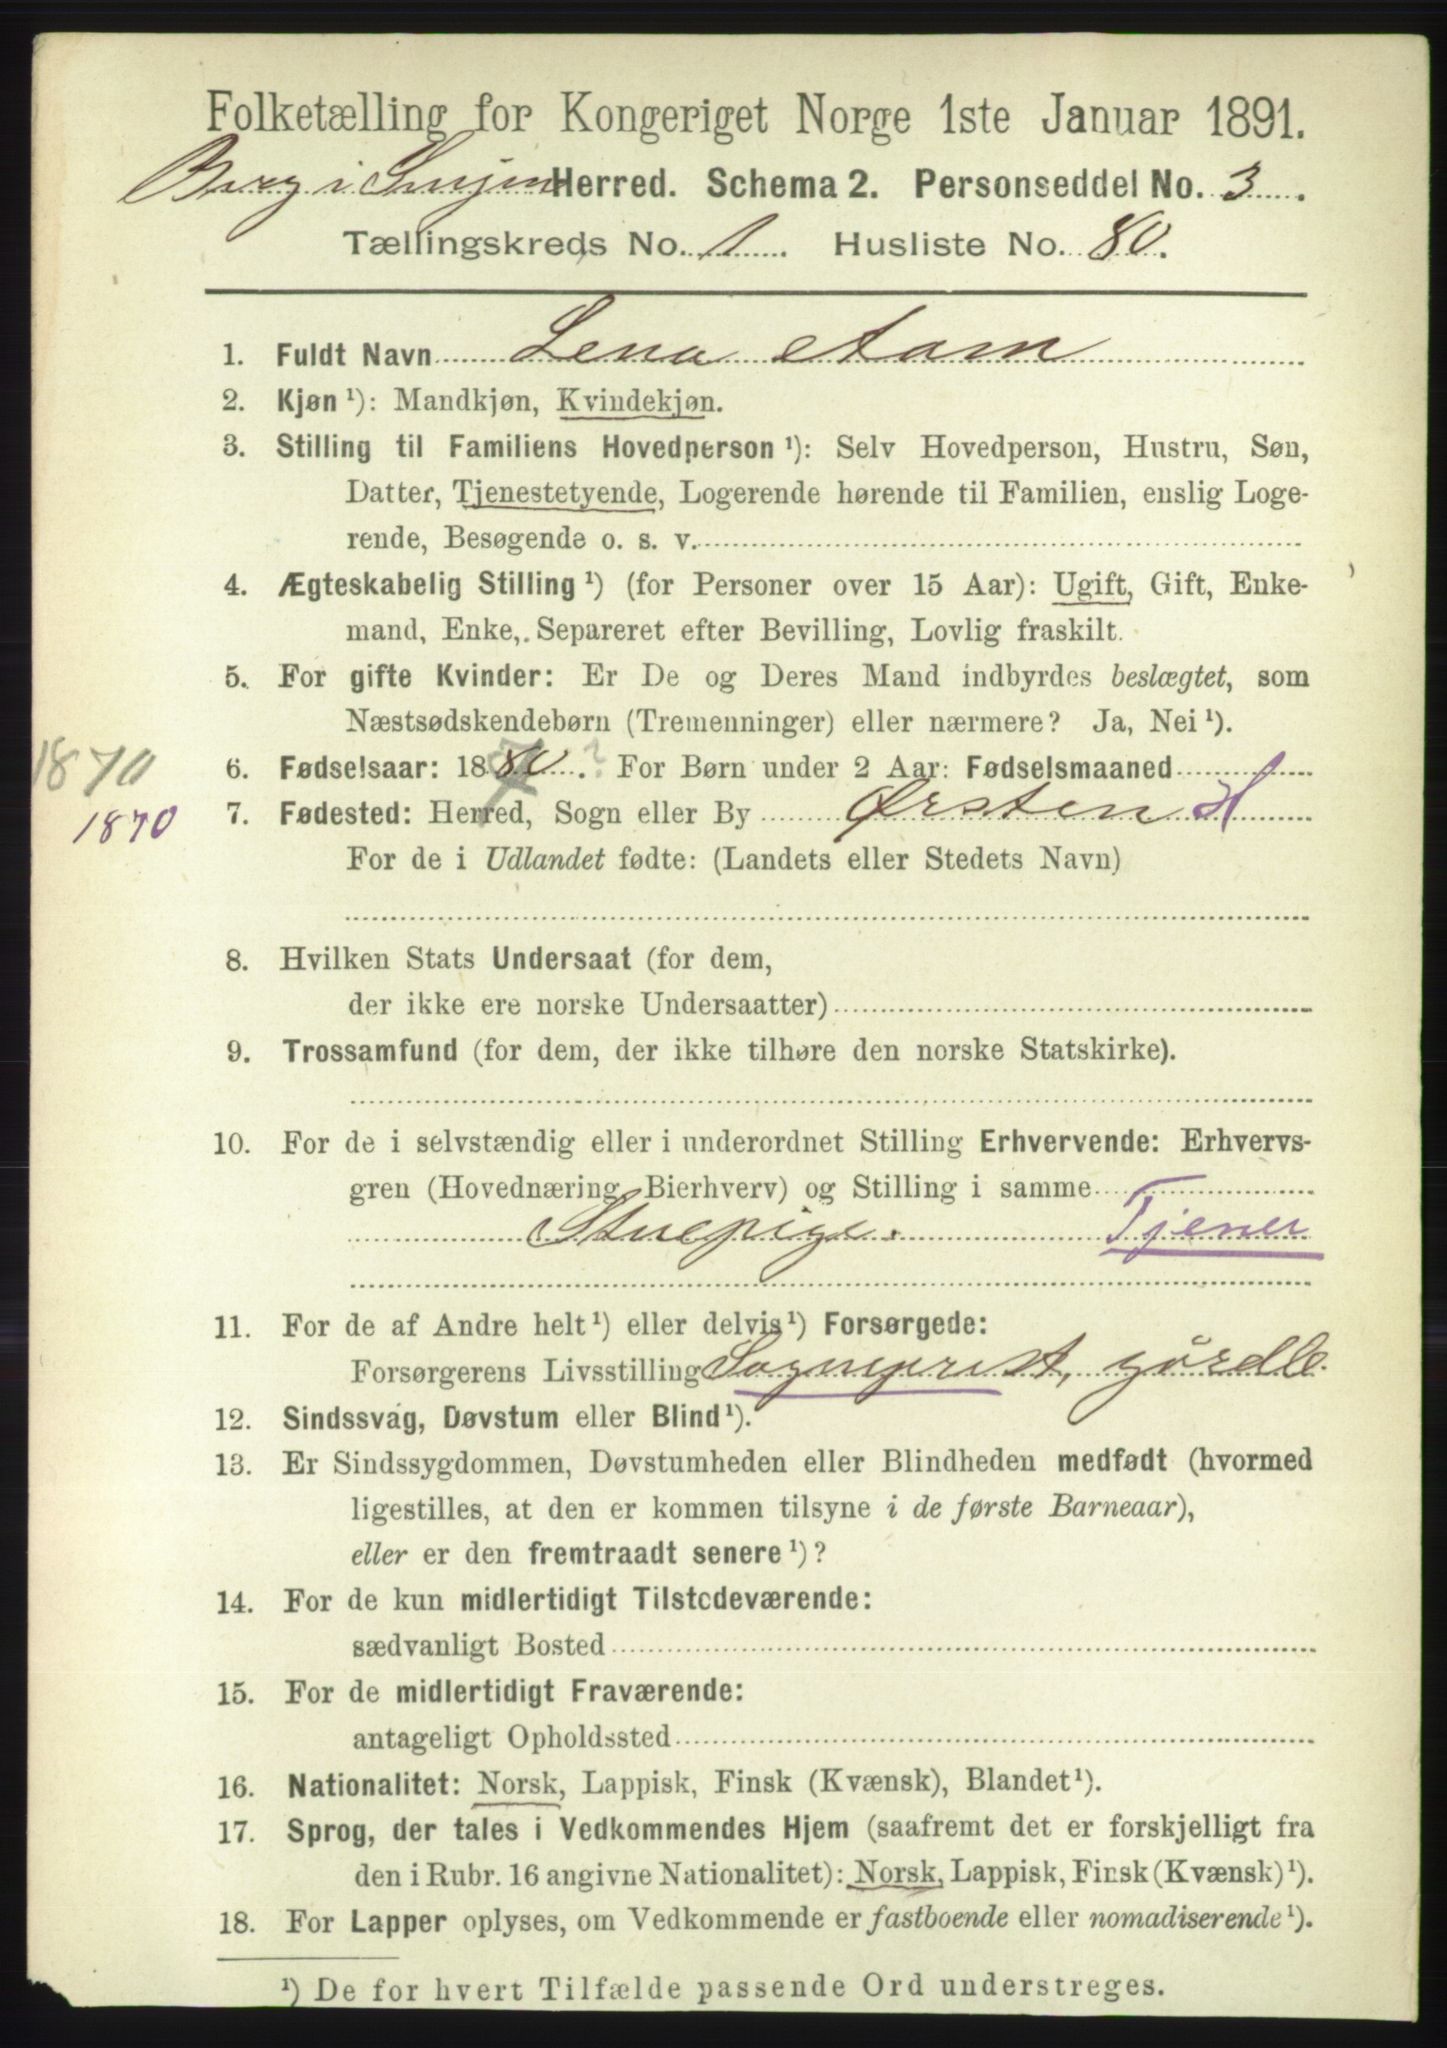 Folketælling for Kongeriget Norge 1ste Januar 1891.
Berg i Senjen Herred. Schema 2. Personseddel No. 3.
Tællingskreds No. 1. Husliste No. 80.
1. Fuldt Navn Lena Aam
2. Kjøn ¹): Mandkjøn, Kvindekjøn.
3. Stilling til Familiens Hovedperson ¹): Selv Hovedperson, Hustru, Søn,
Datter, Tjenestetyende, Logerende hørende til Familien, enslig Loge-
rende, Besøgende o. s. v.
4. Ægteskabelig Stilling ¹) (for Personer over 15 Aar): Ugift, Gift, Enke-
mand, Enke, Separeret efter Bevilling, Lovlig fraskilt.
5. For gifte Kvinder: Er De og Deres Mand indbyrdes beslægtet, som
Næstsødskendebørn (Tremenninger) eller nærmere? Ja, Nei ¹).
1870
6. Fødselsaar: 1880. 7 ? For Børn under 2 Aar: Fødselsmaaned
1870
7. Fødested: Herred, Sogn eller By Ørsten H
For de i Udlandet fødte: (Landets eller Stedets Navn)
8. Hvilken Stats Undersaat (for dem,
der ikke ere norske Undersaatter)
9. Trossamfund (for dem, der ikke tilhøre den norske Statskirke).
10. For de i selvstændig eller i underordnet Stilling Erhvervende: Erhvervs-
gren (Hovednæring, Bierhverv) og Stilling i samme
Stuepige. Tjener
11. For de af Andre helt ¹) eller delvis ¹) Forsørgede:
Forsørgerens Livsstilling Sogneprest,
12. Sindssvag, Døvstum eller Blind ¹).
13. Er Sindssygdommen, Døvstumheden eller Blindheden medfødt (hvormed
ligestilles, at den er kommen tilsyne i de første Barneaar),
eller er den fremtraadt senere ¹)?
14. For de kun midlertidigt Tilstedeværende:
sædvanligt Bosted
15. For de midlertidigt Fraværende:
antageligt Opholdssted
16. Nationalitet: Norsk, Lappisk, Finsk (Kvænsk), Blandet ¹).
17. Sprog, der tales i Vedkommendes Hjem (saafremt det er forskjelligt fra
den i Rubr. 16 angivne Nationalitet): Norsk, Lappisk, Finsk (Kvænsk) ¹).
18. For Lapper oplyses, om Vedkommende er fastboende eller nomadiserende ¹).
¹) De for hvert Tilfælde passende Ord understreges.